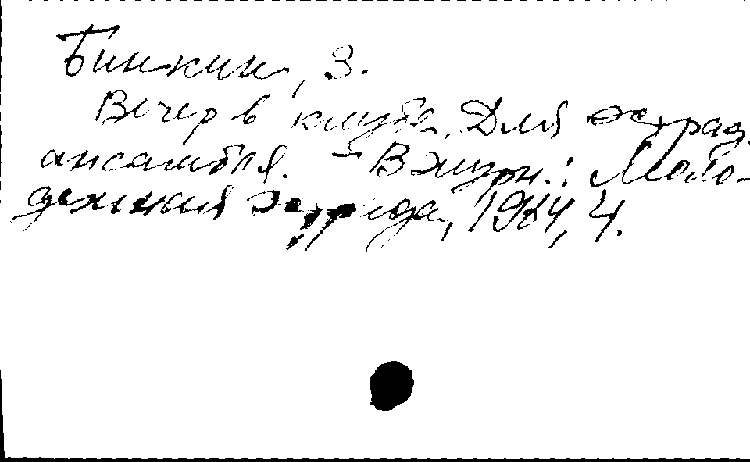 Бинкин, З.
Вечер в клубе. Для эстрад.
ансамбля. - В журн.: Моло-
дежная эстрада, 1984, 4.